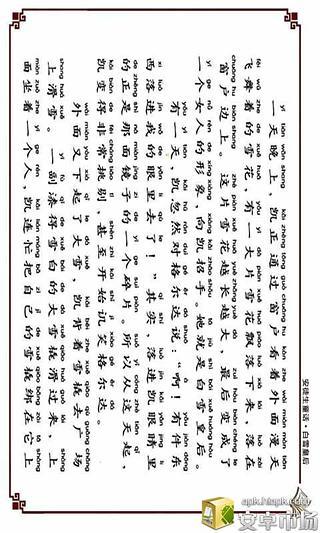 安徒生童话·白雪皇后
yì tiān wǎn shang kǎi zhèng tōng guò chuāng hu kàn zhe wài miàn màn tiān
一天晚上，凯正通过窗户看着外面漫天
fēi wǔ zhe de xuě huā yǒu yí dà piàn xuě huā piāo luò xià lái luò zài
飞舞着的雪花，有一大片雪花飘落下来，落在
chuāng hu biān shang zhè piàn xuě huā yuè zhǎng yuè dà zuì hòu biàn chéng le
窗户边上。这片雪花越长越大，最后变成了
yí ge nǚ rén de xíng xiàng xiàng kǎi zhāo shǒu tā jiù shì bái xuě huáng hòu
一个女人的形象，向凯招手。她就是白雪皇后。
yǒu yì tiān kǎi hū rán duì gé ěr dá shuō ā yǒu jiàn dōng
有一天，凯忽然对格尔达说：“啊！有件东
xi luò jìn wǒ de yǎn li qù le qí shí luò jìn kǎi yǎn jing li
西落进我的眼里去了！”其实，落进凯眼睛里
de zhèng shì nà miàn jìng zi de yí ge suì piàn suǒ yǐ cóng zhè tiān qǐ
的正是那面镜子的一个碎片。所以从这天起，
kǎi biàn de fēi cháng tiāo ti shèn zhì kāi shǐ jī xiào gé ěr dá
凯变得非常挑剔，甚至开始讥笑格尔达。
wài miàn yòu xià qǐ le dà xuě kǎi bēi zhe xuě qiāo qù guǎng chǎng
外面又下起了大雪，凯背着雪橇去广场
shang huá xuě yí fù qī de xuě bái de dà xuě qiāo huá guò lái shàng
上滑雪。一副漆得雪白的大雪橇滑过来，上
miàn zuò zhe yí ge rén kǎi lián máng bǎ zì jǐ de xuě qiāo bǎng zài tā shàng
面坐着一个人，凯连忙把自己的雪橇绑在它上
apk.hiapk.com
安卓市场